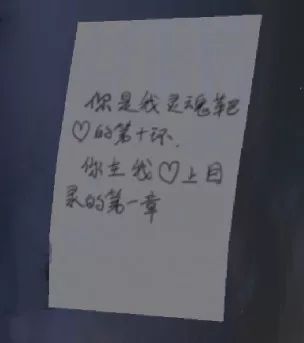 你是我灵魂靶
♡的第十环.
你在我♡上目
录的第一章